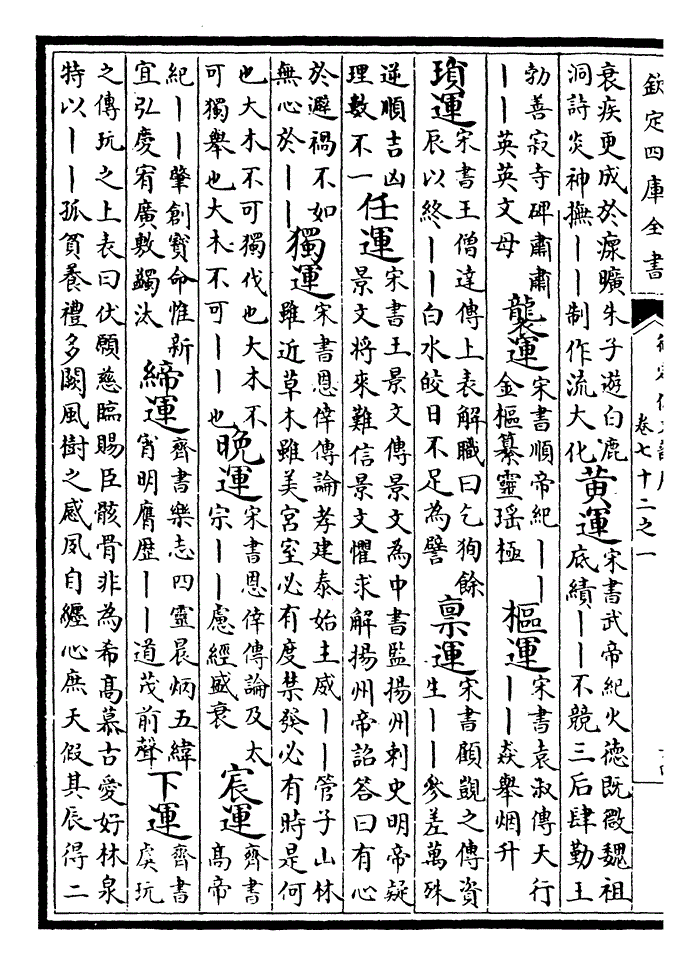 欽定四庫全書
卷七十二之一
衰疾更成於瘝曠朱子遊白鹿
洞詩炎神撫丨丨制作流大化
黄運
宋書武帝紀火德既微魏祖
底績丨丨不競三后肆勤王
勃善寂寺碑肅肅
丨丨英英文母
襲運
宋書順帝紀丨丨
金樞纂靈瑶極
樞運
宋書袁淑傳天行
丨丨猋舉烟升
瑣運
宋書王僧達傳上表解職曰乞狥餘
辰以終丨丨白水皎日不足為譬
禀運
宋書顧覬之傳資
生丨丨參差萬殊
逆順吉凶
理數不一
任運
宋書王景文傳景文為中書監揚州刺史明帝疑
景文將來難信景文懼求解揚州帝詔答曰有心
於避禍不如
無心於丨丨
獨運
宋書恩倖傳論孝建泰始主威丨丨管子山林
雖近草木雖美宮室必有度禁發必有時是何
也大木不可獨伐也大木不
可獨舉也大木不可丨丨也
晚運
宋書恩倖傳論及太
宗丨丨慮經盛衰
宸運
齊書
高帝
紀丨丨肇創寳命惟新
宜弘慶宥廣敷蠲汰
締運
齊書樂志四靈晨炳五緯
宵明膺歴丨丨道茂前聲
下運
齊書
虞玩
之傳玩之上表曰伏願慈臨賜臣骸骨非為希高慕古愛好林泉
特以丨丨孤貧養禮多闕風樹之感夙自纒心庶天假其辰得二